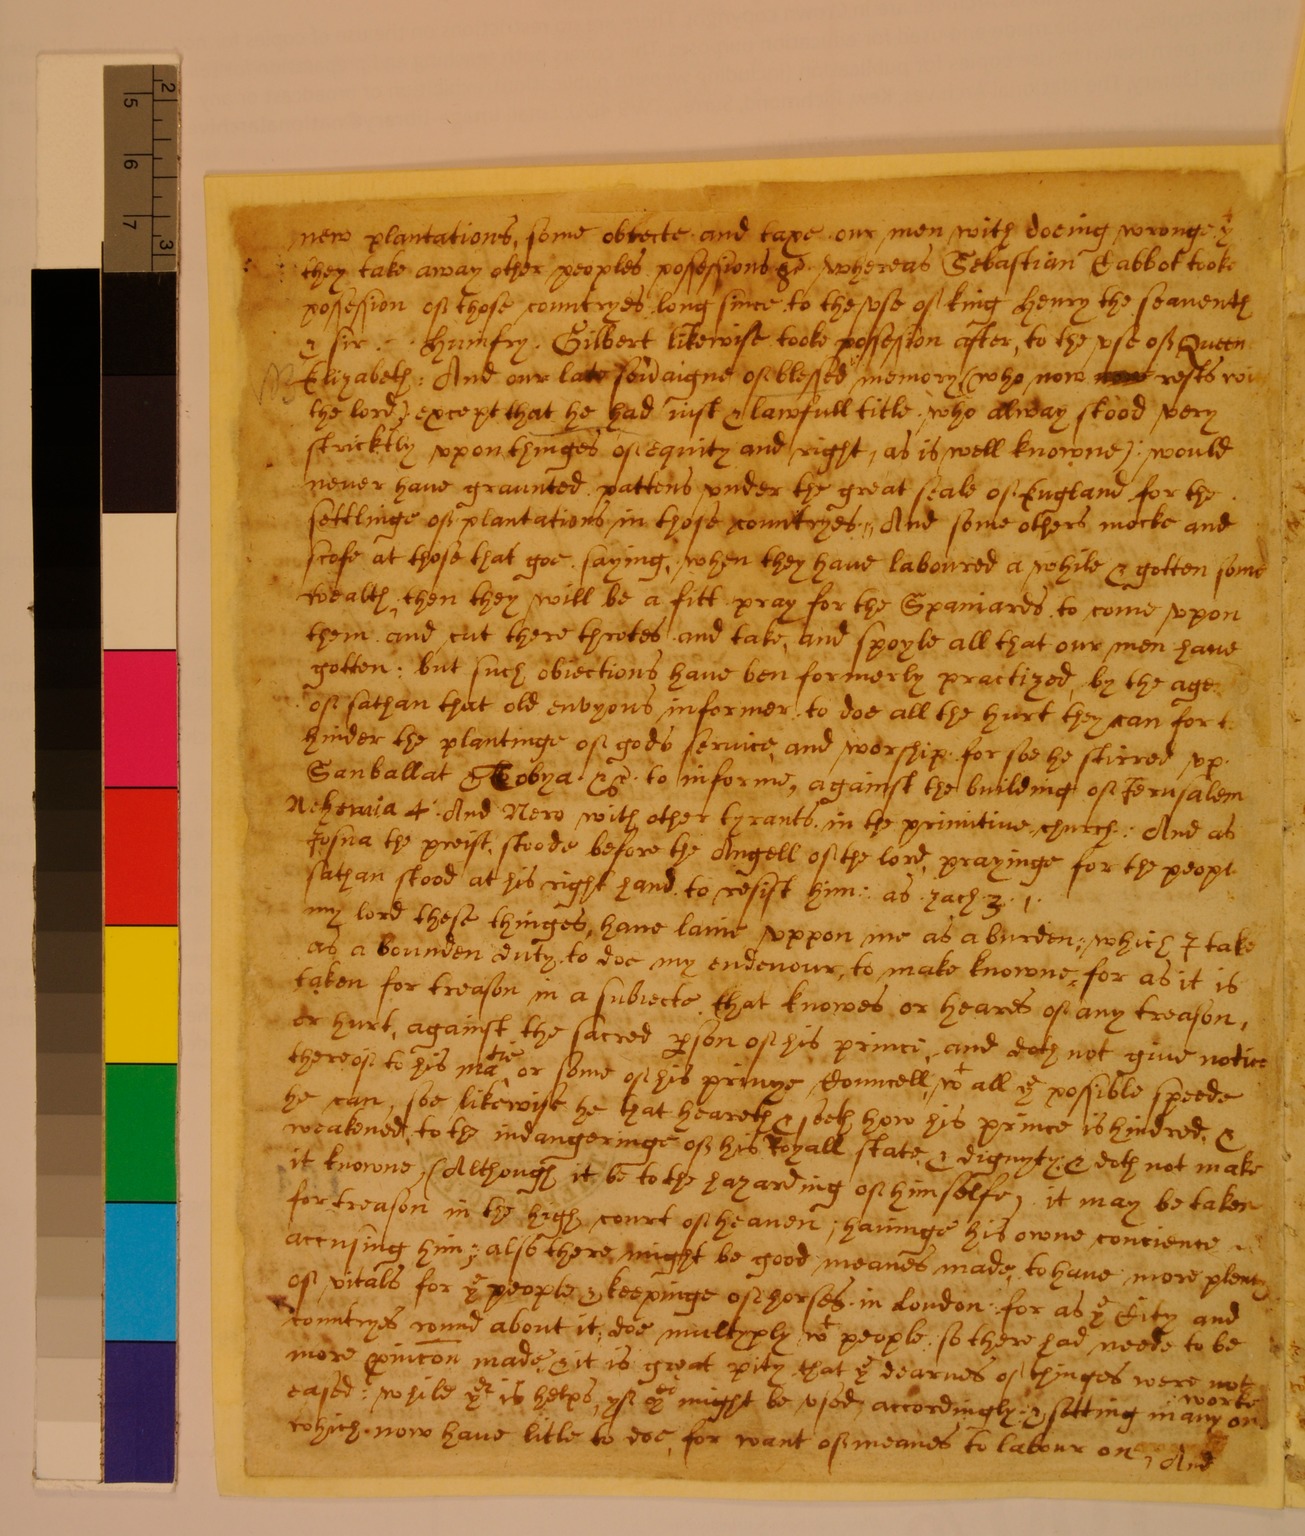 new plantations, some obiecte and taxe our men with doeing wronge yt
they take away other peoples possessions &c. whereas Sebastian Cabbot tooke
possession of those countryes long since to the vse of king Henry the seauenth
& sir Humfry Gilbert likewise tooke possession after, to the vse of Queen
Elizabeth: And our late souraigne of blessed memory (who now rests
the lord) except that he had iust & lawfull title who alway stood very
stricktly vpon thinges of equity and right, as is well knowne): would
neuer have graunted pattens vnder the great seale of England for the
settlinge of plantations in those countryes, And some others mocke and
scofe at those that goe saying, when they haue laboured a while & gotten some
wealth, then they will be a fitt pray for the Spaniards to come vpon
them and cut there throtes and take, and spoyle all that our men haue
gotten: but such obiections haue ben formerly practized by the age
of sathan that old envyous informer to doe all the hurt they can for t
hinder the plantinge of gods seruice and worship for soe he stirred vp
Sanballat & Tobya &c. to informe, against the building of Ierusalem
Nehemia 4. And Nero with other tyrants in the primitiue church: And as
Iosua the preist, stoode before the Angell of the lord, prayinge for the peopl
sathan stood at his right hand to resist him: as zach 3. 1.
my lord these thinges, haue laine vppon me as a burden; which I take
as a bounden duty to doe my endeuour, to make knowne, for as it is
taken for treason in a subiecte that knowes or heares of any treason,
or hurt, against the sacred pson of his princ, and doth not giue notice
thereof to his matie or some of his priuye Councell, wt all ye possible speede
he can, soe likewise he that heareth & seeth how his prince is hindred, &
weakened, to the indangeringe of his Royall state & dignyty & doth not make
it knowne, (Although it be to the hazarding of himselfe) it may be taken
for treason in the high court of heauen, hauinge his owne concience
accusing him; also there might be good meanes made, to haue more plenty
of vitals for ye people & keepinge of horses in London for as ye City and
Countryes round about it, doe multyply wt people so there had neede to be
more made, & it is great pity that ye dearnes of thinges were not
eased: while yer is helps, yf yey might be vsed accordingly & setting many on worke
which now haue litle to doe, for want of meanes to labour on
And